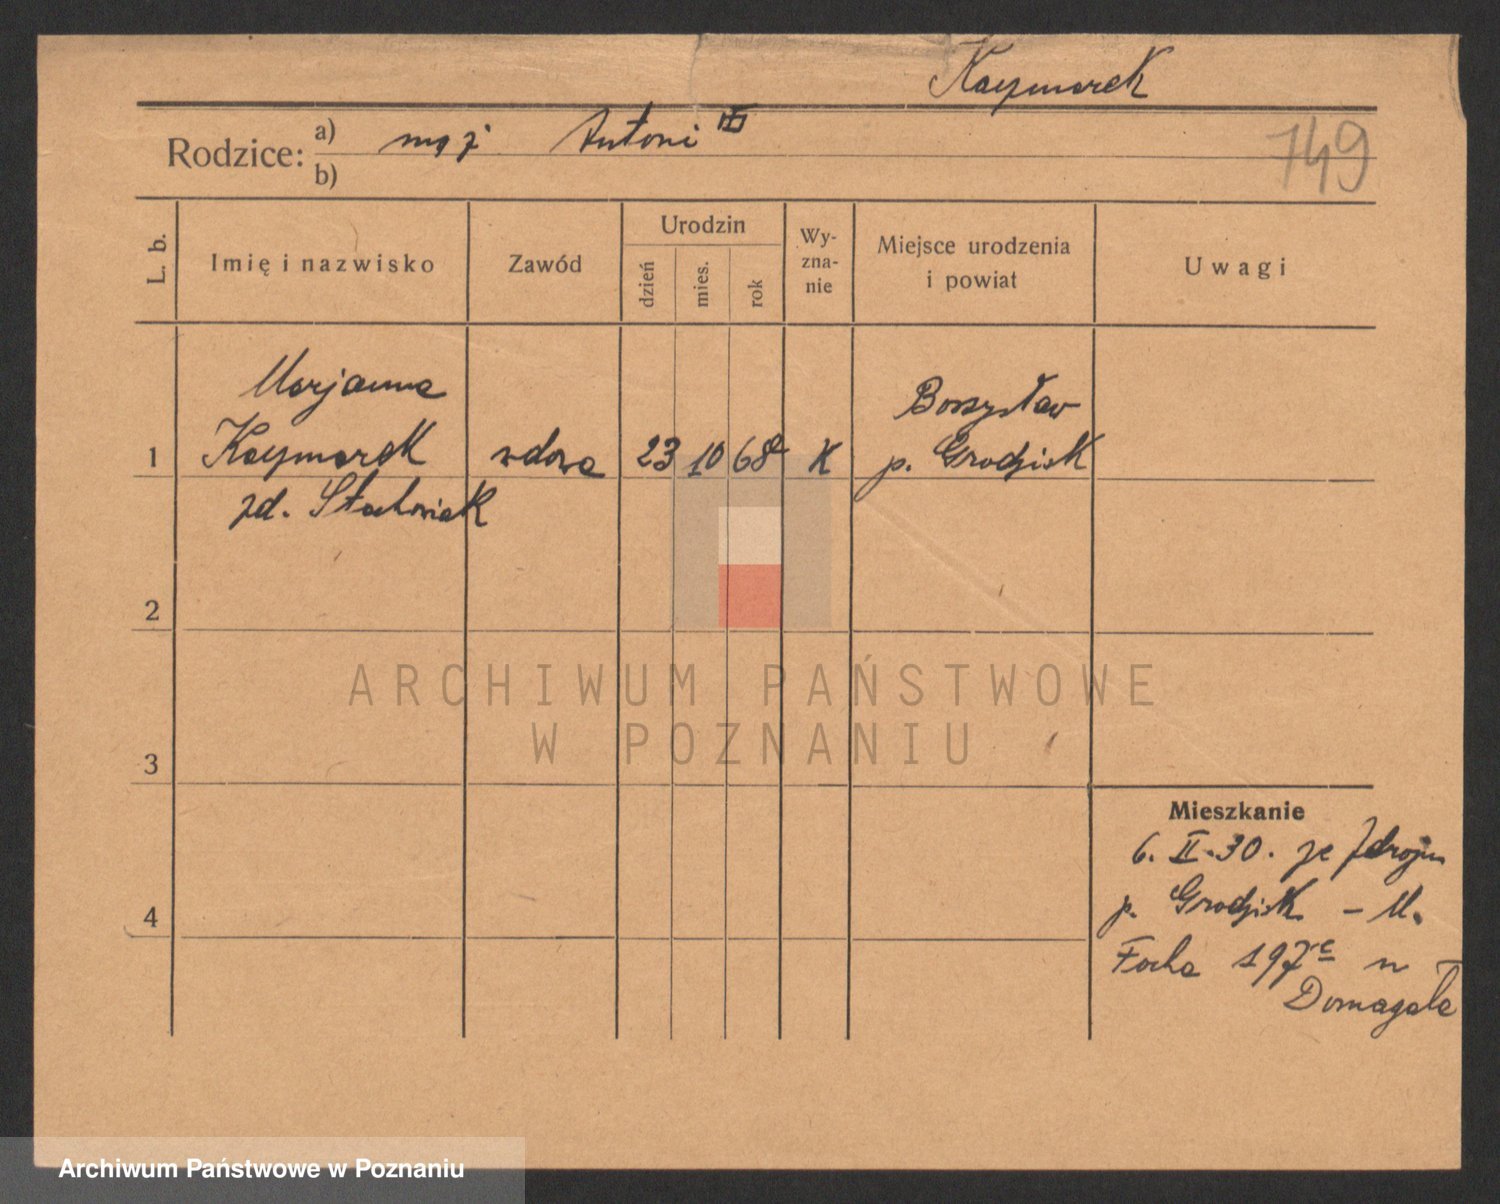 Kaczmarek
749
Rodzice: a) mąż Antoni
b)
L. b.
Imię i nazwisko
Zawód
Urodzin
dzień
mies.
rok
Wy-
zna-
nie
Miejsce urodzenia
i powiat
Uwagi
Marjanna
Kaczmarek
zd. Stachowiak
1
wdowa
23 10 68
K
Borzysław
p. Grodzisk
2
3
4
Mieszkanie
6. II. 30. ze Zdroju
p. Grodzisk – M.
Focha 197
Domagała
ARCHIWUM PAŃSTWOWE
W POZNANIU
Archiwum Państwowe w Poznaniu